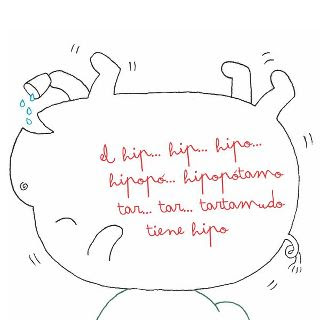 el hip... hip... hipo...
hipopó... hipopótamo
tar... tar... tartamudo
tiene hipo